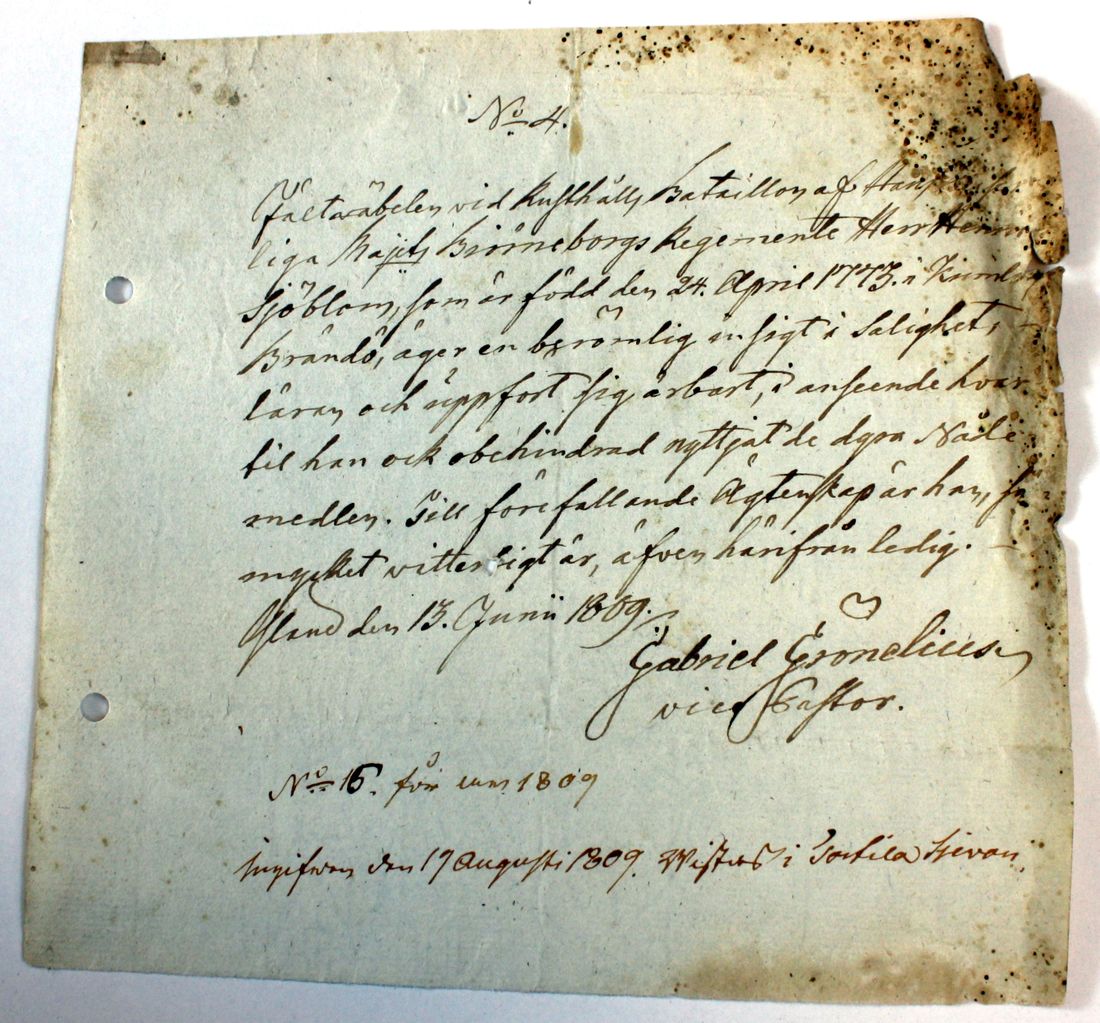 No 4.
Fältwäbelen vid Rusthålls Bataillon af
liga Majts Björneborgs Regemente Herr
Sjöblom, som är född den 24. April 1773. i
Brändö, äger en berömlig insigt i Salighets
läran och uppfört sig ärbart, i anseende hvar
til han ock obehindrad nyttjat de dyra Nåde
medlen. Till förefallande Ägtenskap är han, så
mycket witterligt är, äfven härifrån ledig. —
Åland den 13. Junii 1809.
Gabriel Grönelius
vice Pastor.
No 15. för 1809
Ingifwen den 17 Augusti 1809. Wistas i